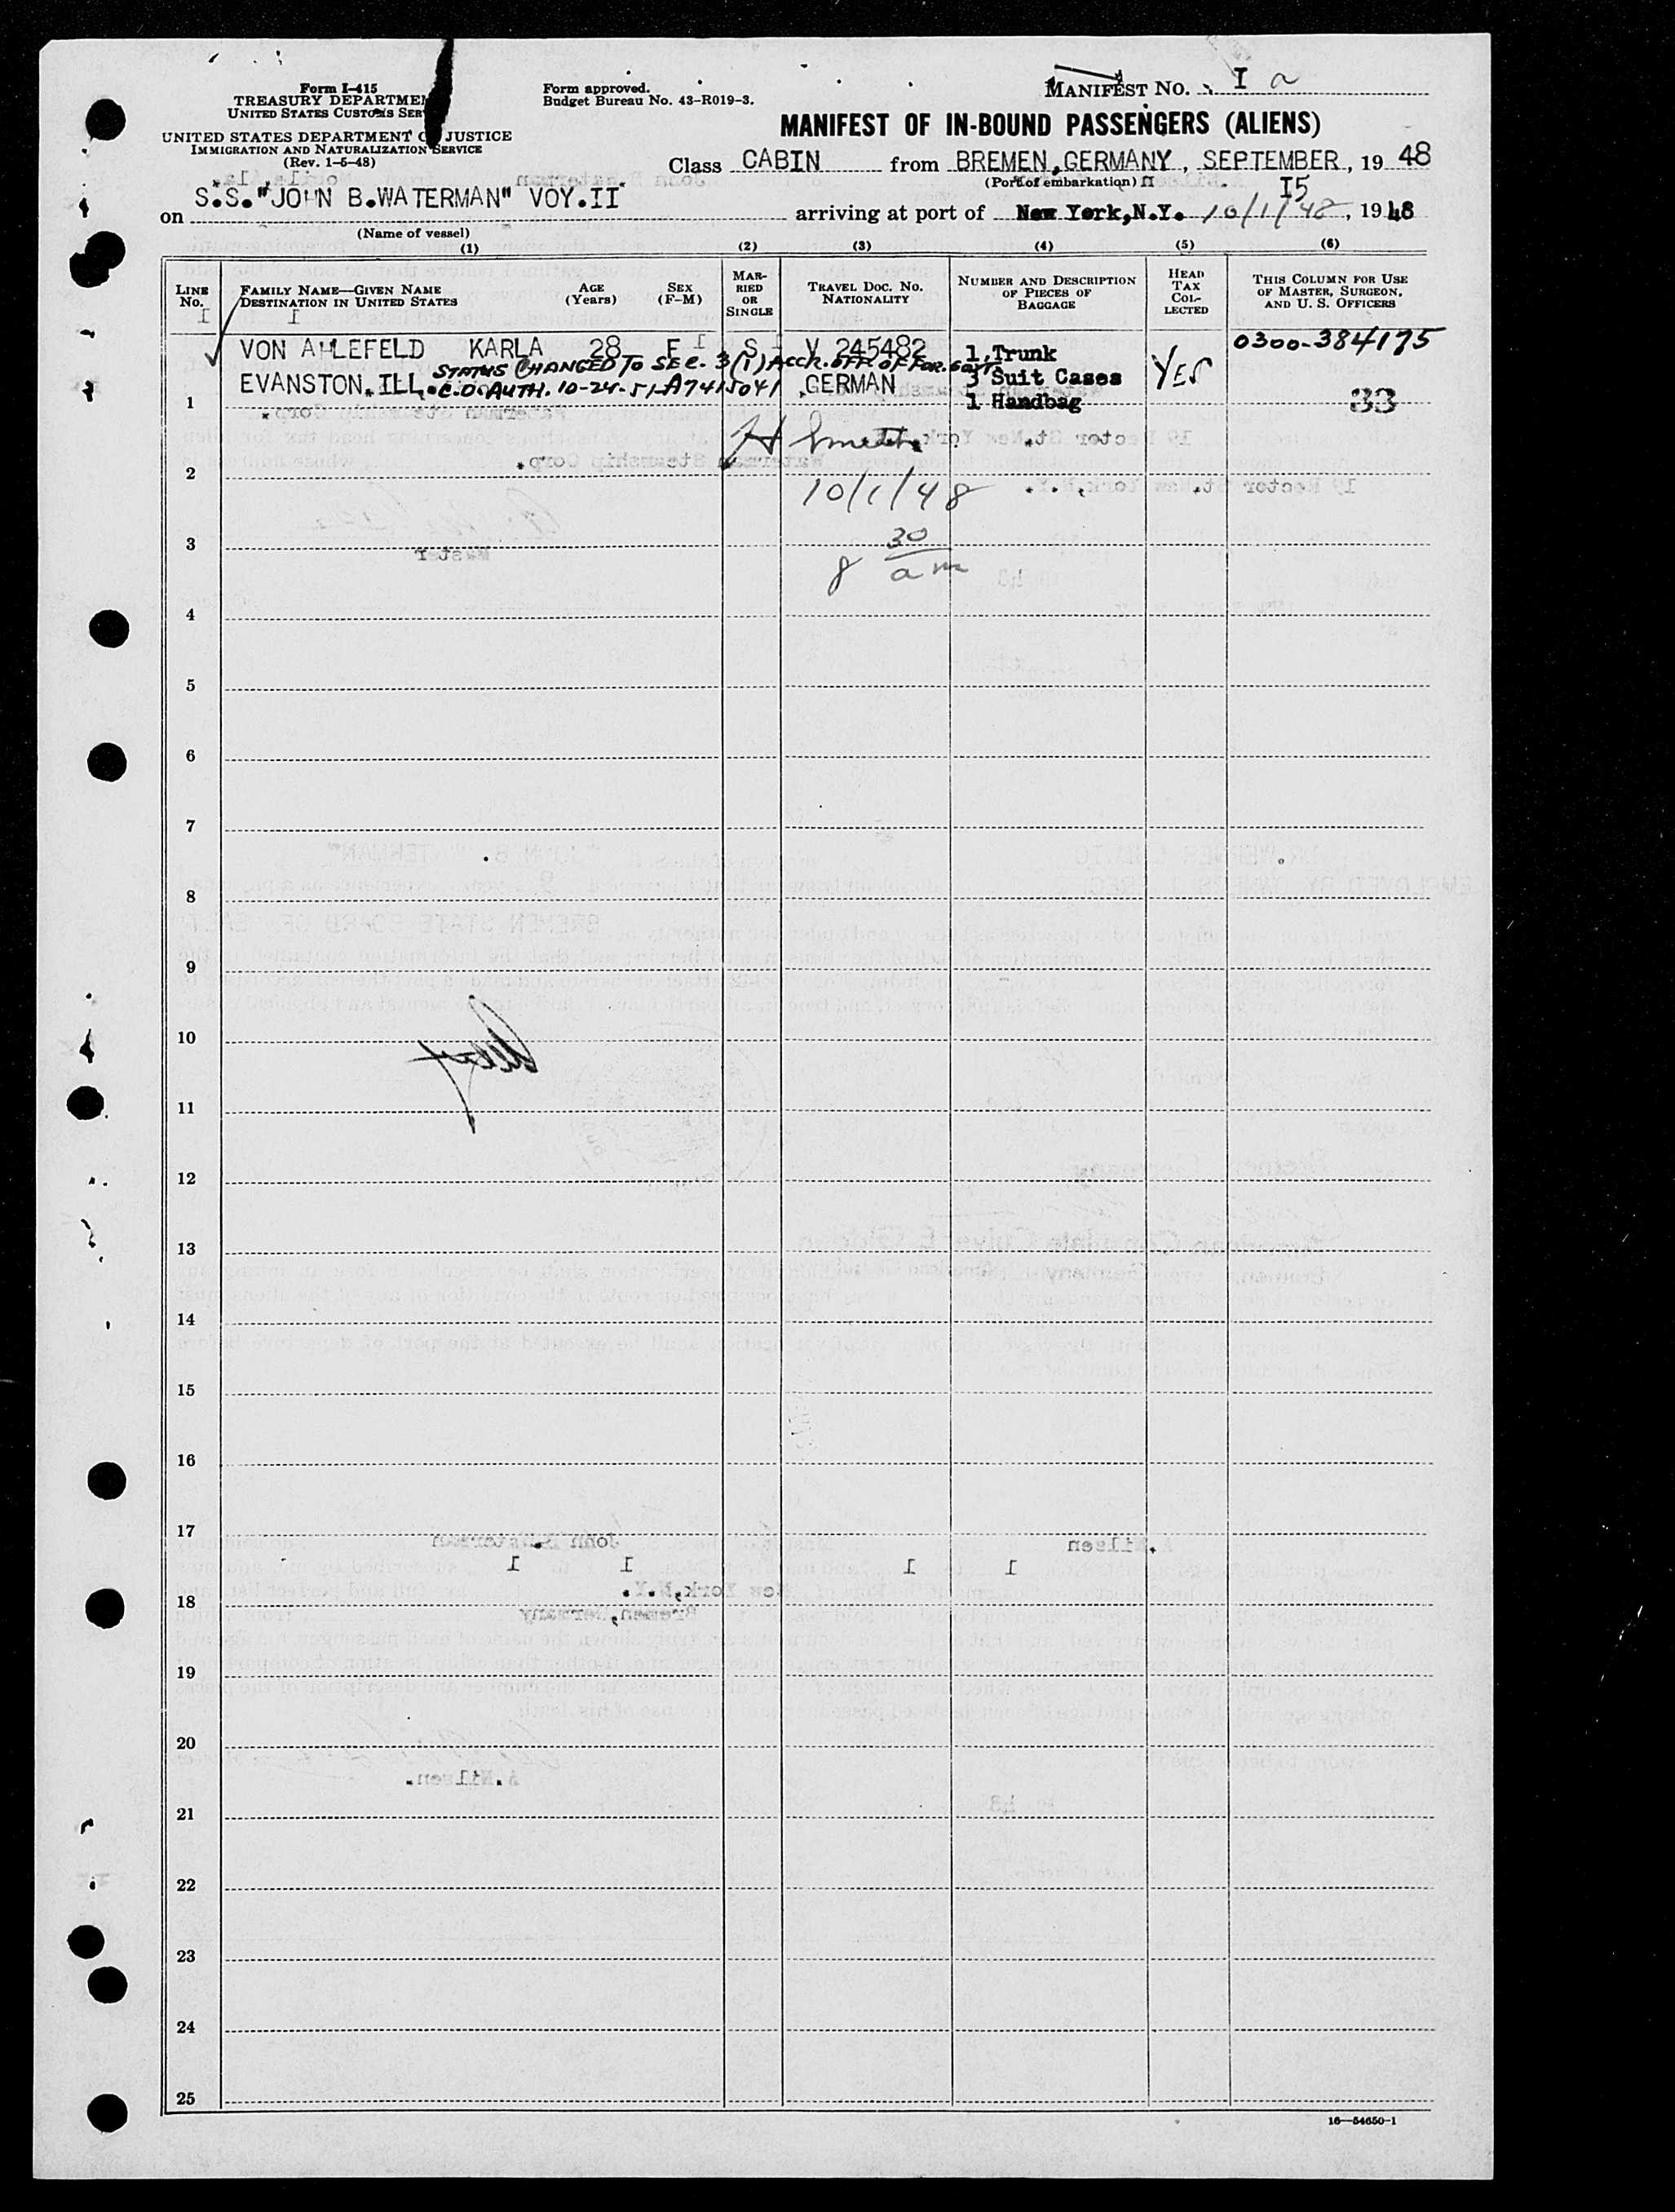 Form I-415
TREASURY DEPARTMENT
UNITED STATES CUSTOMS SERVICE
UNITED STATES DEPARTMENT OF JUSTICE
IMMIGRATION AND NATURALIZATION SERVICE
(Rev. 1-5-48)
Form approved.
Budget Bureau No. 43-R019-3.
MANIFEST NO. I a
MANIFEST OF IN-BOUND PASSENGERS (ALIENS)
Class CABIN from BREMEN,GERMANY, SEPTEMBER, 19 48
(Port of embarkation) I5
on S.S."JOHN B.WATERMAN" VOY.II arriving at port of New York,N.Y. 10/1/48, 1948
(Name of vessel)
(1) (2) (3) (4) (5) (6)
LINE No. FAMILY NAME—GIVEN NAME DESTINATION IN UNITED STATES AGE (Years) SEX (F-M) MARRIED OR SINGLE TRAVEL DOC. NO. NATIONALITY NUMBER AND DESCRIPTION OF PIECES OF BAGGAGE HEAD TAX COLLECTED THIS COLUMN FOR USE OF MASTER, SURGEON, AND U. S. OFFICERS
I I
VON AHLEFELD KARLA 28 F S V 245482 1 Trunk YES 0300-384175
STATUS CHANGED TO SEC. 3(1) ACCR. OFF. OF FOR. GOVT.
EVANSTON.ILL. C.O. AUTH. 10-24-51-A7415041 GERMAN 3 Suit Cases
1 1 Handbag 33
2
10/1/48
3
8 30 am
4
5
6
7
8
9
10
11
12
13
14
15
16
17
18
19
20
21
22
23
24
25
16—54650-1